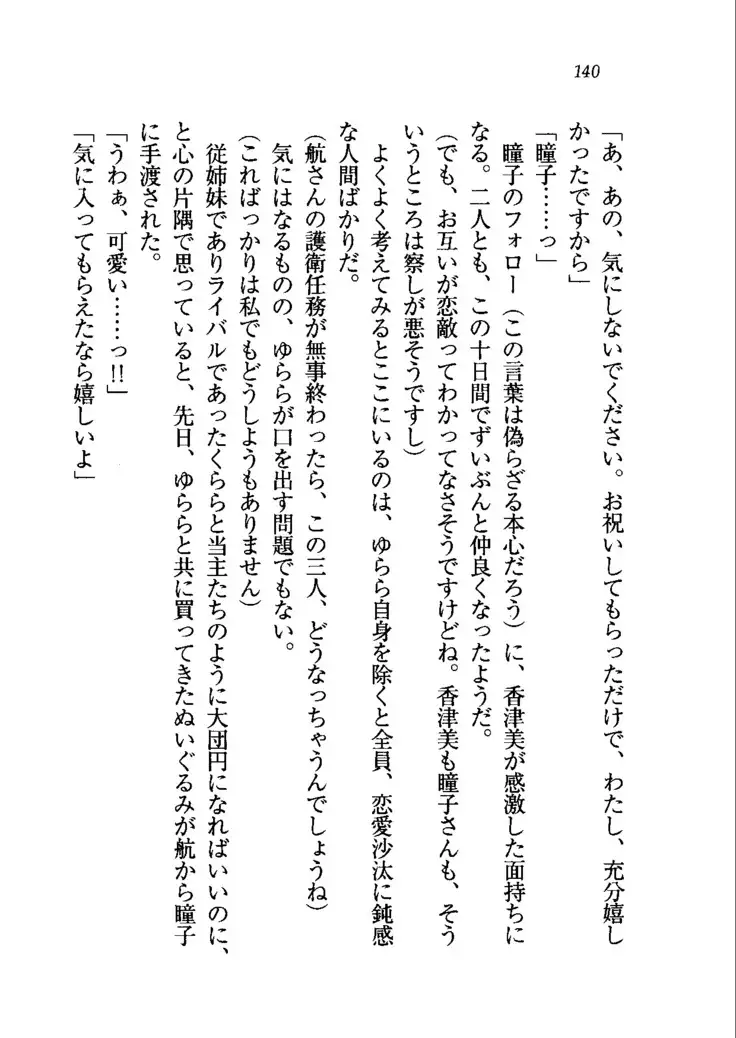 140
「あ、あの、気にしないでください。お祝いしてもらっただけで、わたし、充分嬉し
かったですから」
「瞳子……っ」
瞳子のフォロー（この言葉は偽らざる本心だろう）に、香津美が感激した面持ちに
なる。二人とも、この十日間でずいぶんと仲良くなったようだ。
（でも、お互いが恋敵ってわかってなさそうですけどね。香津美も瞳子さんも、そう
いうところは察しが悪そうですし）
よくよく考えてみるとここにいるのは、ゆらら自身を除くと全員、恋愛沙汰に鈍感
な人間ばかりだ。
（航さんの護衛任務が無事終わったら、この三人、どうなっちゃうんでしょうね）
気にはなるものの、ゆららが口を出す問題でもない。
（こればっかりは私でもどうしようもありません）
従姉妹でありライバルであったくららと当主たちのように大団円になればいいのに、
と心の片隅で思っていると、先日、ゆららと共に買ってきたぬいぐるみが航から瞳子
に手渡された。
「うわぁ、可愛い……っ!!」
「気に入ってもらえたなら嬉しいよ」